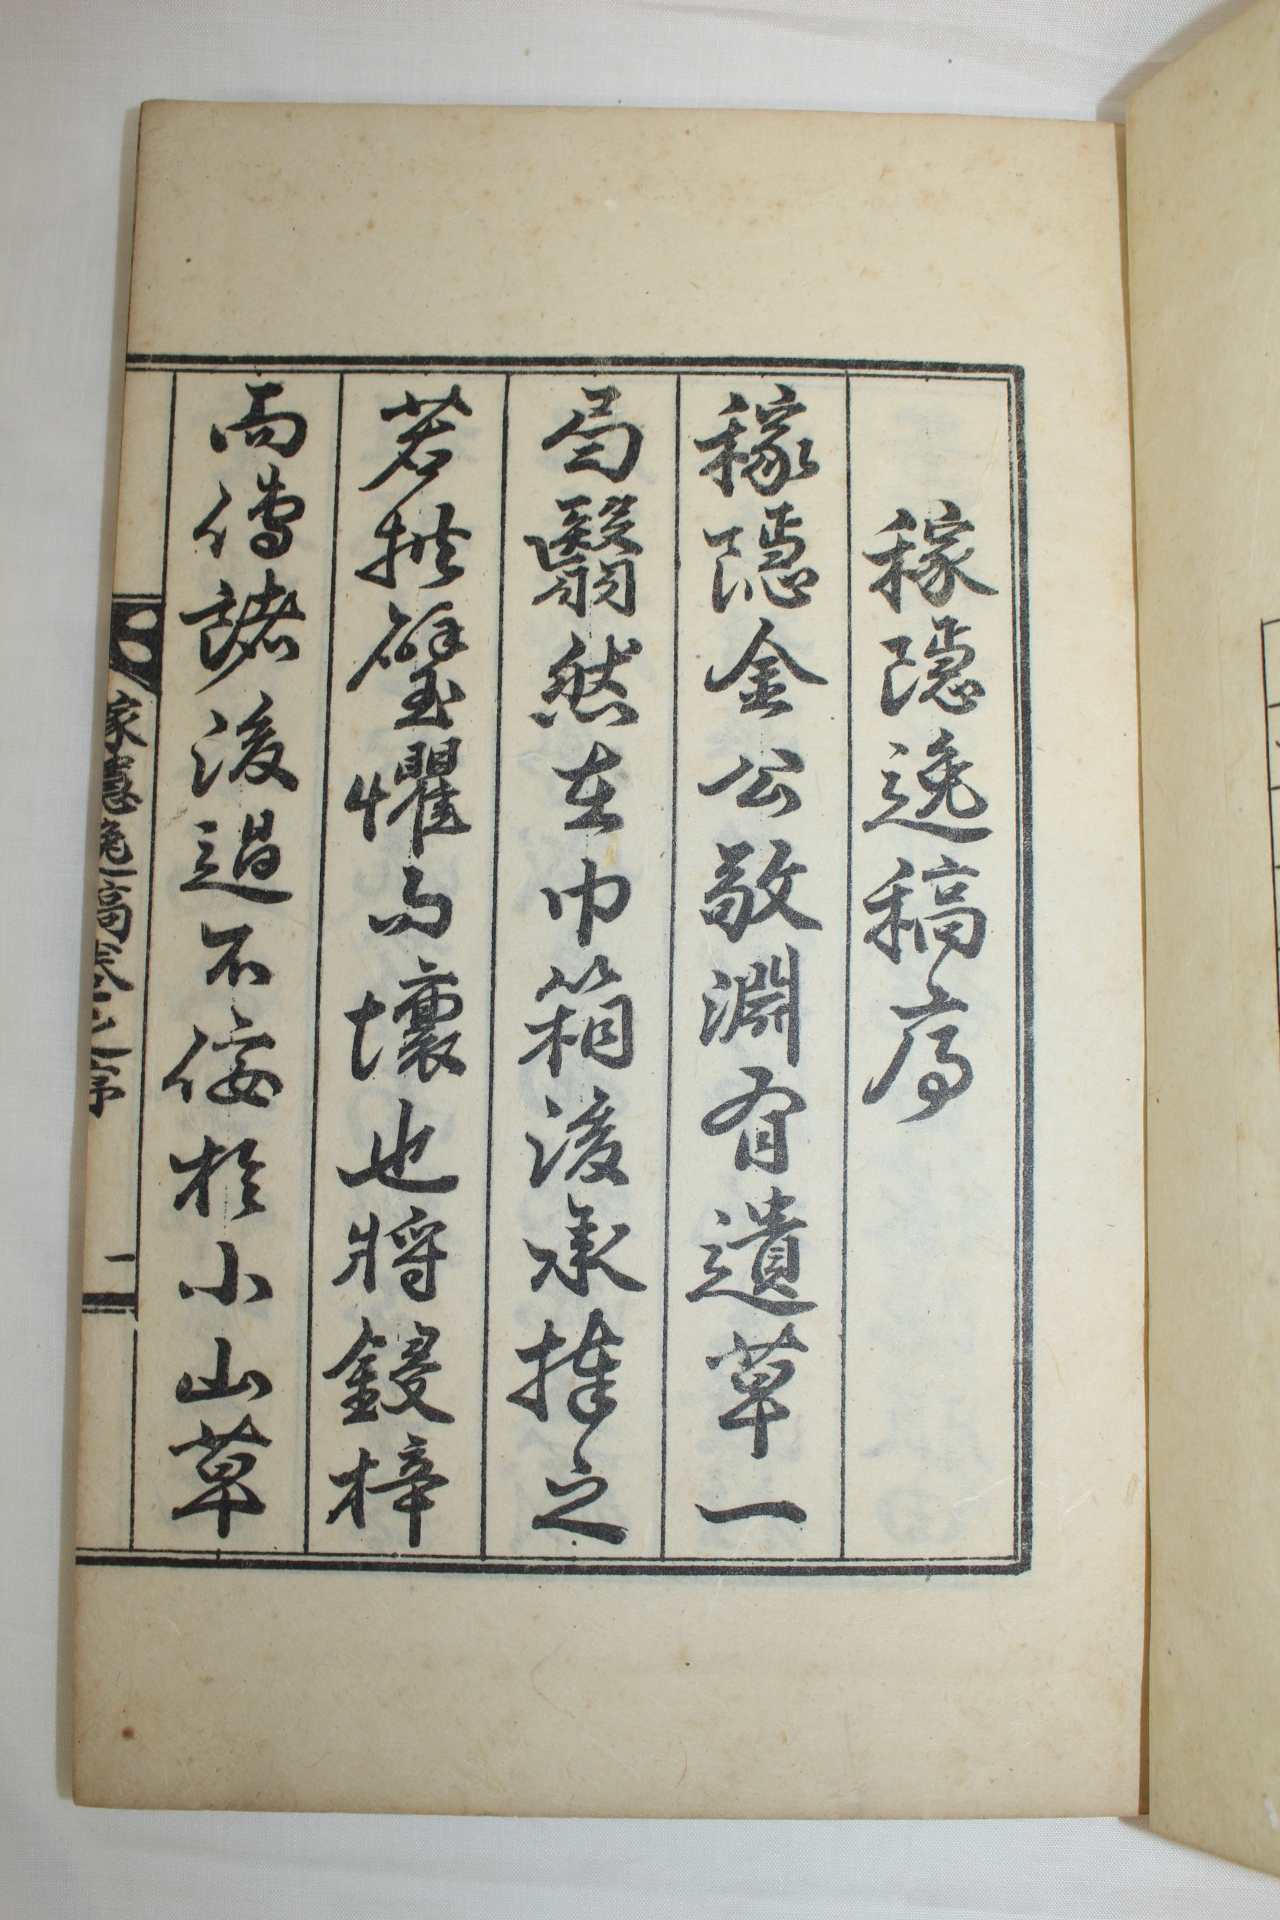 稼隱逸稿序
稼隱金公敬淵有遺草一
局翳然在巾箱後承捧之
若拱璧懼而壞也將鋟梓
而傳諸後過不佞於小山草
稼隱逸稿卷之序 一